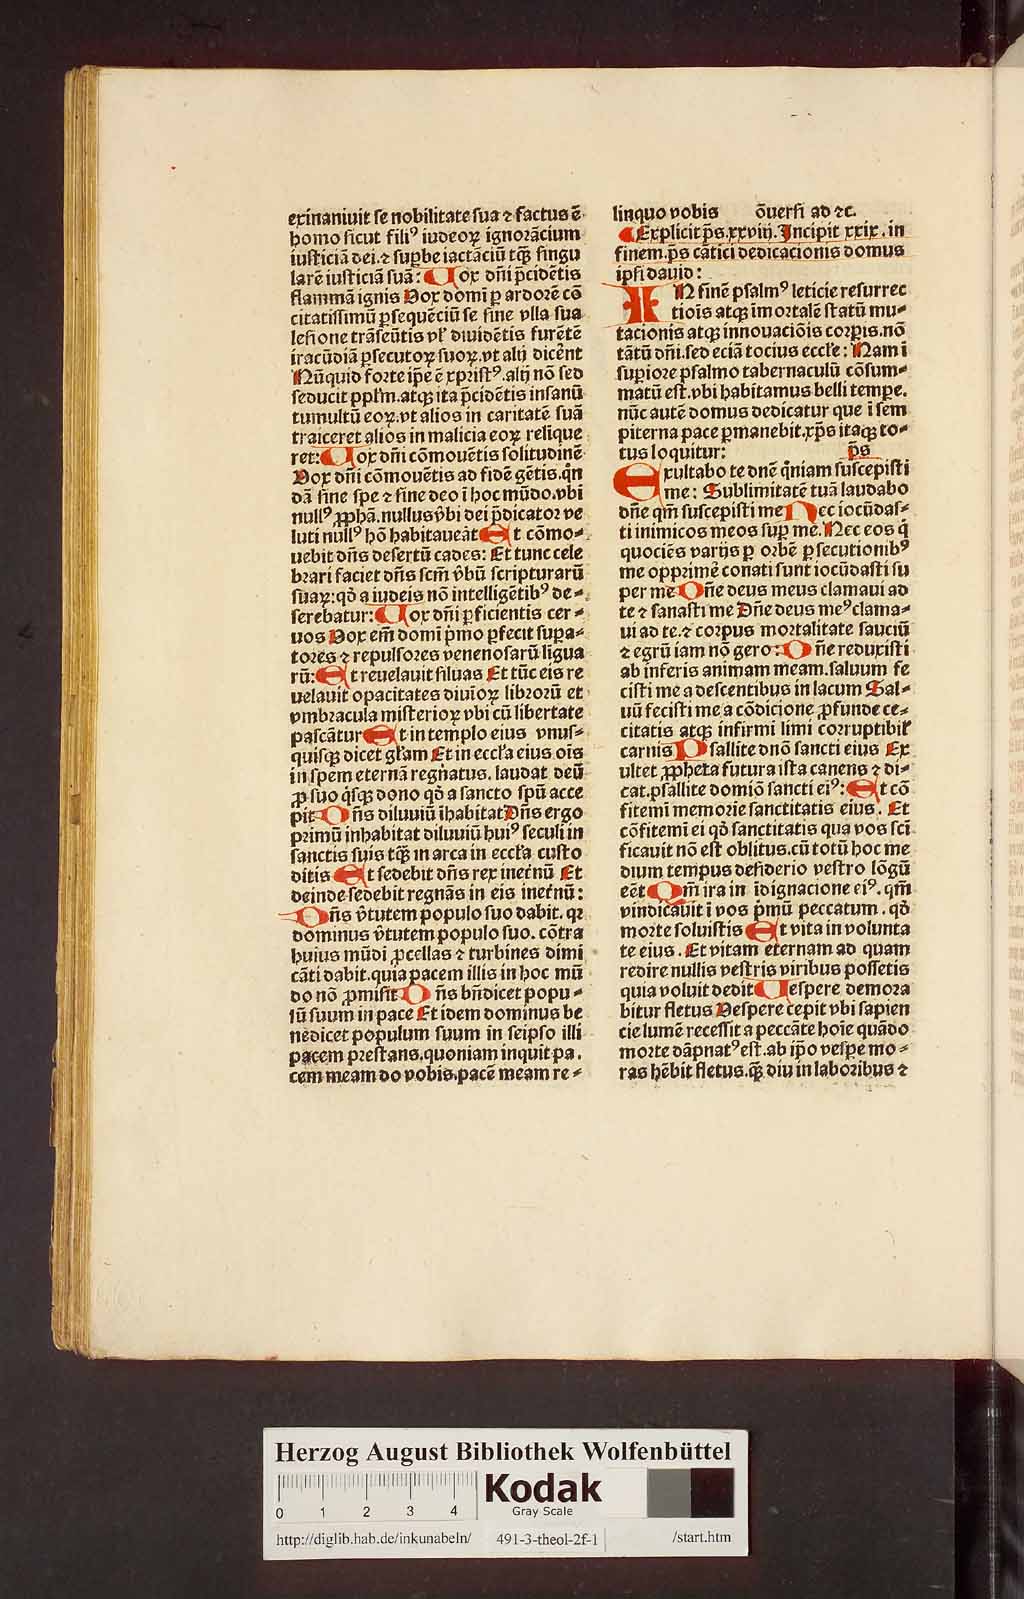 exinaniuit se nobilitate sua ⁊ factus ē
homo sicut filiꝰ iudeoꝝ ignorācium
iusticiā dei.⁊ suꝑbe iactāciū tāꝙ̄ singu
larē iusticiā suā: Uox dn̄i p̄cidētis
flammā ignis Vox domī ꝑ ardorē cō
citatissimū ꝑsequēciū se sine vlla sua
lesione trāseūtis vƚ diuidētis furētē
iracūdiā ꝑsecutoꝝ suoꝝ.vt alij dicēnt
Nūquid forte ip̄e ē xp̄ristꝰ.alij nō sed
seducit ppƚm.atqꝫ ita p̄cidētis insanū
tumultū eoꝝ.vt alios in caritatē suā
traiceret alios in malicia eoꝝ relīque
ret: Uox dn̄i cōmouētis solitudinē
Vox dn̄i cōmouētis ad fidē gētis.qn̄
dā sine spe ⁊ sine deo ī hoc mūdo.vbi
nullꝰ ꝓphā.nullus v̄bi dei p̄dicator ve
luti nullꝰ hō habitaueāt Et cōmo-
uebit dn̄s desertū cades: Et tunc cele
brari faciet dn̄s scm̄ v̄bū scripturarū
suaꝝ:qō a iudeis nō intelligētibꝰ de-
serebatur: Uox dn̄i ꝑficientis cer-
uos Vox em̄ domī pīmo ꝑfecit suꝑa-
tores ⁊ repulsores venenosarū ligua
rū: Et reuelauit siluas Et tūc eis re
uelauit opacitates diuīoꝝ librorū et
vmbracula misterioꝝ vbi cū libertate
pascātur Et in templo eius vnus-
quisqꝫ dicet gƚam Et in eccƚa eius oīs
in spem eternā regnatus. laudat deū
ꝓ suo qīsqꝫ dono qō a sancto spū acce
pit Dn̄s diluuiū īhabitat Dn̄s ergo
primū inhabitat diluuiū huiꝰ seculi in
sanctis suis tāꝙ̄ in arca in eccƚa custo
ditis Et sedebit dn̄s rex inetnū Et
deinde sedebit regnās in eis inetnū:
Dn̄s v̄tutem populo suo dabit. qꝛ
dominus v̄tutem populo suo. cōtra
huius mūdi ꝓcellas ⁊ turbines dimi
cāti dabit.quia pacem illis in hoc mū
do nō ꝓmisit Dn̄s bn̄dicet popu-
lū suum in pace Et idem dominus be
nedicet populum suum in seipso illi
pacem prestans.quoniam inquit pa.
cem meam do vobis.pacē meam re-
linquo vobis ōuersi ad ⁊c.
Explicit p̄s.xxviij. Incipit xxix. in
finem.p̄s catici dedicacionis domus
ipsi dauid:
IN finē psalmꝰ leticie resurrec
tiois atqꝫ imortalē statū mu-
tacionis atqꝫ innouaciōis corꝑis.nō
tātū dn̄i.sed eciā tocius eccƚe: Nam ī
suꝑiore psalmo tabernaculū cōsum-
matū est.vbi habitamus belli tempe.
nūc autē domus dedicatur que ī sem
piterna pace ꝑmanebit.xp̄s itaqꝫ to-
tus loquitur: p̄s
Exultabo te dnē qm̄iam suscepisti
me: Sublimitatē tuā laudabo
dn̄e qm̄ suscepisti me Nec iocūdas-
ti inimicos meos suꝑ me. Nec eos q̄
quociēs varijs ꝑ orbē ꝑsecutionibꝰ
me opprimē conati sunt iocūdasti su
per me Dn̄e deus meus clamaui ad
te ⁊ sanasti me Dn̄e deus meꝰ clama-
ui ad te.⁊ corpus mortalitate sauciū
⁊ egrū iam nō gero: Dn̄e reduxisti
ab inferis animam meam.saluum fe
cisti me a descentibus in lacum Sal-
uū fecisti me a cōdicione ꝓfunde ce-
citatis atqꝫ infirmi limi corruptibiƚ
carnis Psallite dnō sancti eius Ex
ultet ꝓpheta futura ista canens ⁊ di-
cat.psallite domiō sancti eiꝰ: Et cō
fitemī memorie sanctitatis eius. Et
cōfitemī ei qō sanctitatis qua vos sci
ficauit nō est oblitus.cū totū hoc me
dium tempus desiderio vestro lōgū
eēt Qm̄ ira in īdignacione eiꝰ. qm̄
vindicauit ī vos pīmū peccatum. qō
morte soluistis Et vita in volunta
te eius. Et vitam eternam ad quam
redire nullis vestris viribus possetis
quia voluit dedit Uespere demora
bitur fletus Vespere cepit vbi sapien
cie lumē recessit a peccāte hoīe quādo
morte dāpnatꝰ est.ab ip̄o vesꝑe mo-
ras hēbit fletus.qꝙ̄ diu in laboribus ⁊
Herzog August Bibliothek Wolfenbüttel
0 1 2 3 4
Kodak
Gray Scale
http://diglib.hab.de/inkunabeln/ 491-3-theol-2f-1 /start.htm